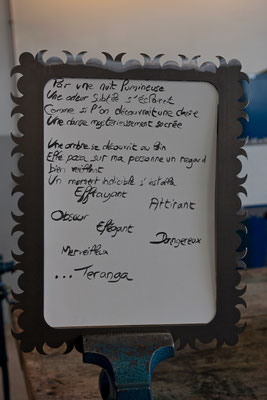 Par une nuit lumineuse
Une odeur subtile s'éclaircit
Comme si l'on découvrait une chose
Une danse mystérieusement sacrée
Une ombre se découvrit au loin
Elle posa sur ma personne un regard
bien
Un moment indicible s'installa
Effrayant
Attirant
Obscur
Elégant
Dangereux
Merveilleux
... Teranga